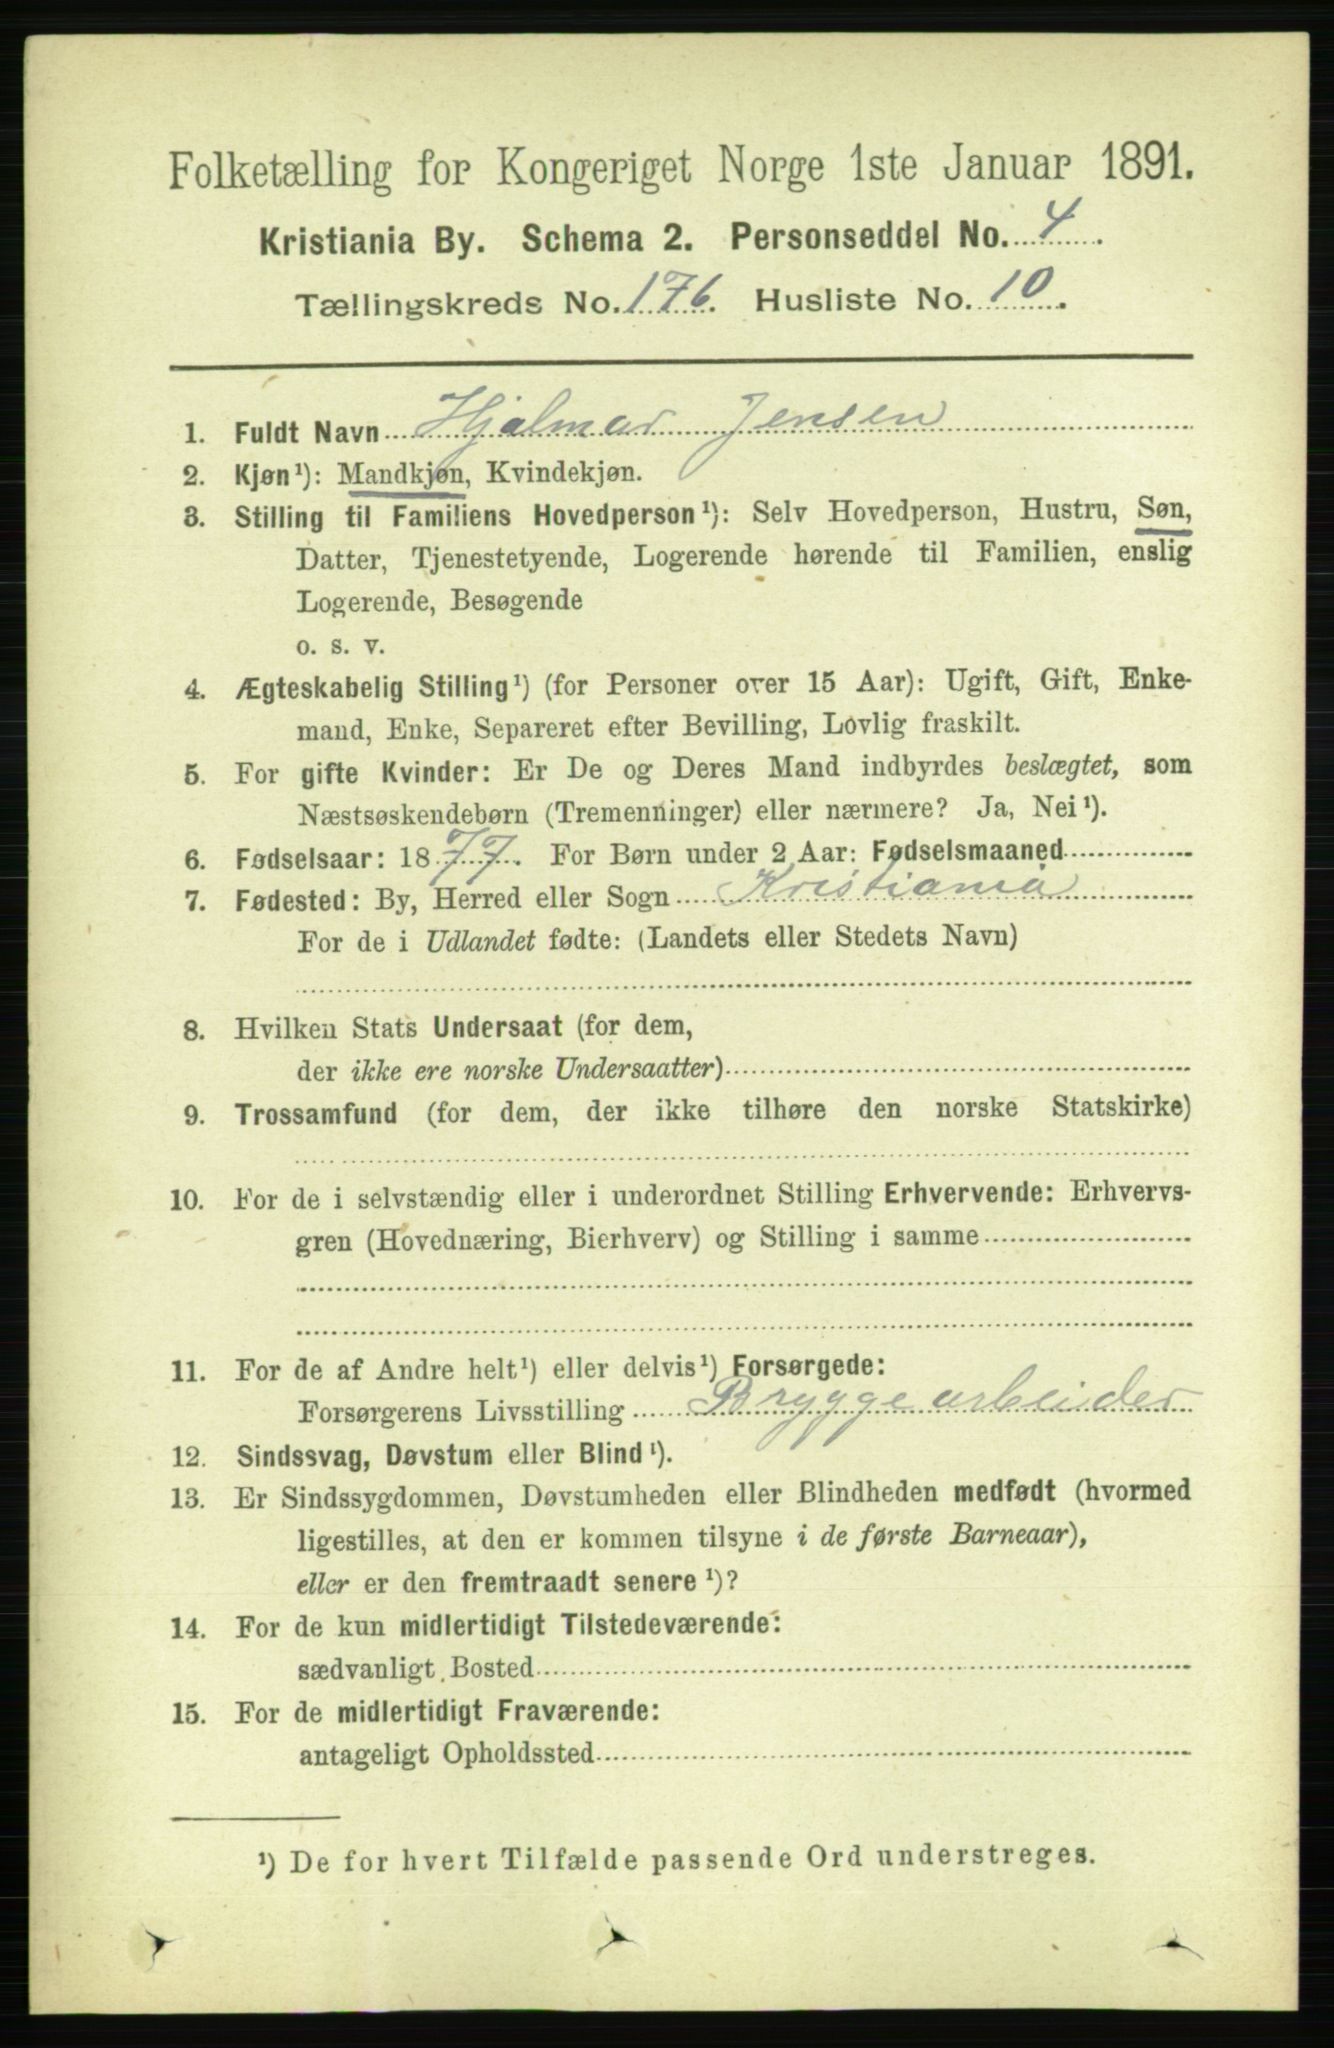 Folketælling for Kongeriget Norge 1ste Januar 1891.
Kristiania By. Schema 2. Personseddel No. 4.
Tællingskreds No. 176. Husliste No. 10.
1. Fuldt Navn Hjalmar Jensen
2. Kjøn¹): Mandkjøn, Kvindekjøn.
3. Stilling til Familiens Hovedperson¹): Selv Hovedperson, Hustru, Søn,
Datter, Tjenestetyende, Logerende hørende til Familien, enslig
Logerende, Besøgende
o. s. v.
4. Ægteskabelig Stilling¹) (for Personer over 15 Aar): Ugift, Gift, Enke-
mand, Enke, Separeret efter Bevilling, Lovlig fraskilt.
5. For gifte Kvinder: Er De og Deres Mand indbyrdes beslægtet, som
Næstsøskendebørn (Tremenninger) eller nærmere? Ja, Nei¹).
6. Fødselsaar: 1877. For Børn under 2 Aar: Fødselsmaaned
7. Fødested: By, Herred eller Sogn Kristiania
For de i Udlandet fødte: (Landets eller Stedets Navn)
8. Hvilken Stats Undersaat (for dem,
der ikke ere norske Undersaatter)
9. Trossamfund (for dem, der ikke tilhøre den norske Statskirke)
10. For de i selvstændig eller i underordnet Stilling Erhvervende: Erhvervs-
gren (Hovednæring, Bierhverv) og Stilling i samme
11. For de af Andre helt¹) eller delvis¹) Forsørgede:
Forsørgerens Livsstilling Bryggearbeider
12. Sindssvag, Døvstum eller Blind¹).
13. Er Sindssygdommen, Døvstumheden eller Blindheden medfødt (hvormed
ligestilles, at den er kommen tilsyne i de første Barneaar),
eller er den fremtraadt senere¹)?
14. For de kun midlertidigt Tilstedeværende:
sædvanligt Bosted
15. For de midlertidigt Fraværende:
antageligt Opholdssted
¹) De for hvert Tilfælde passende Ord understreges.